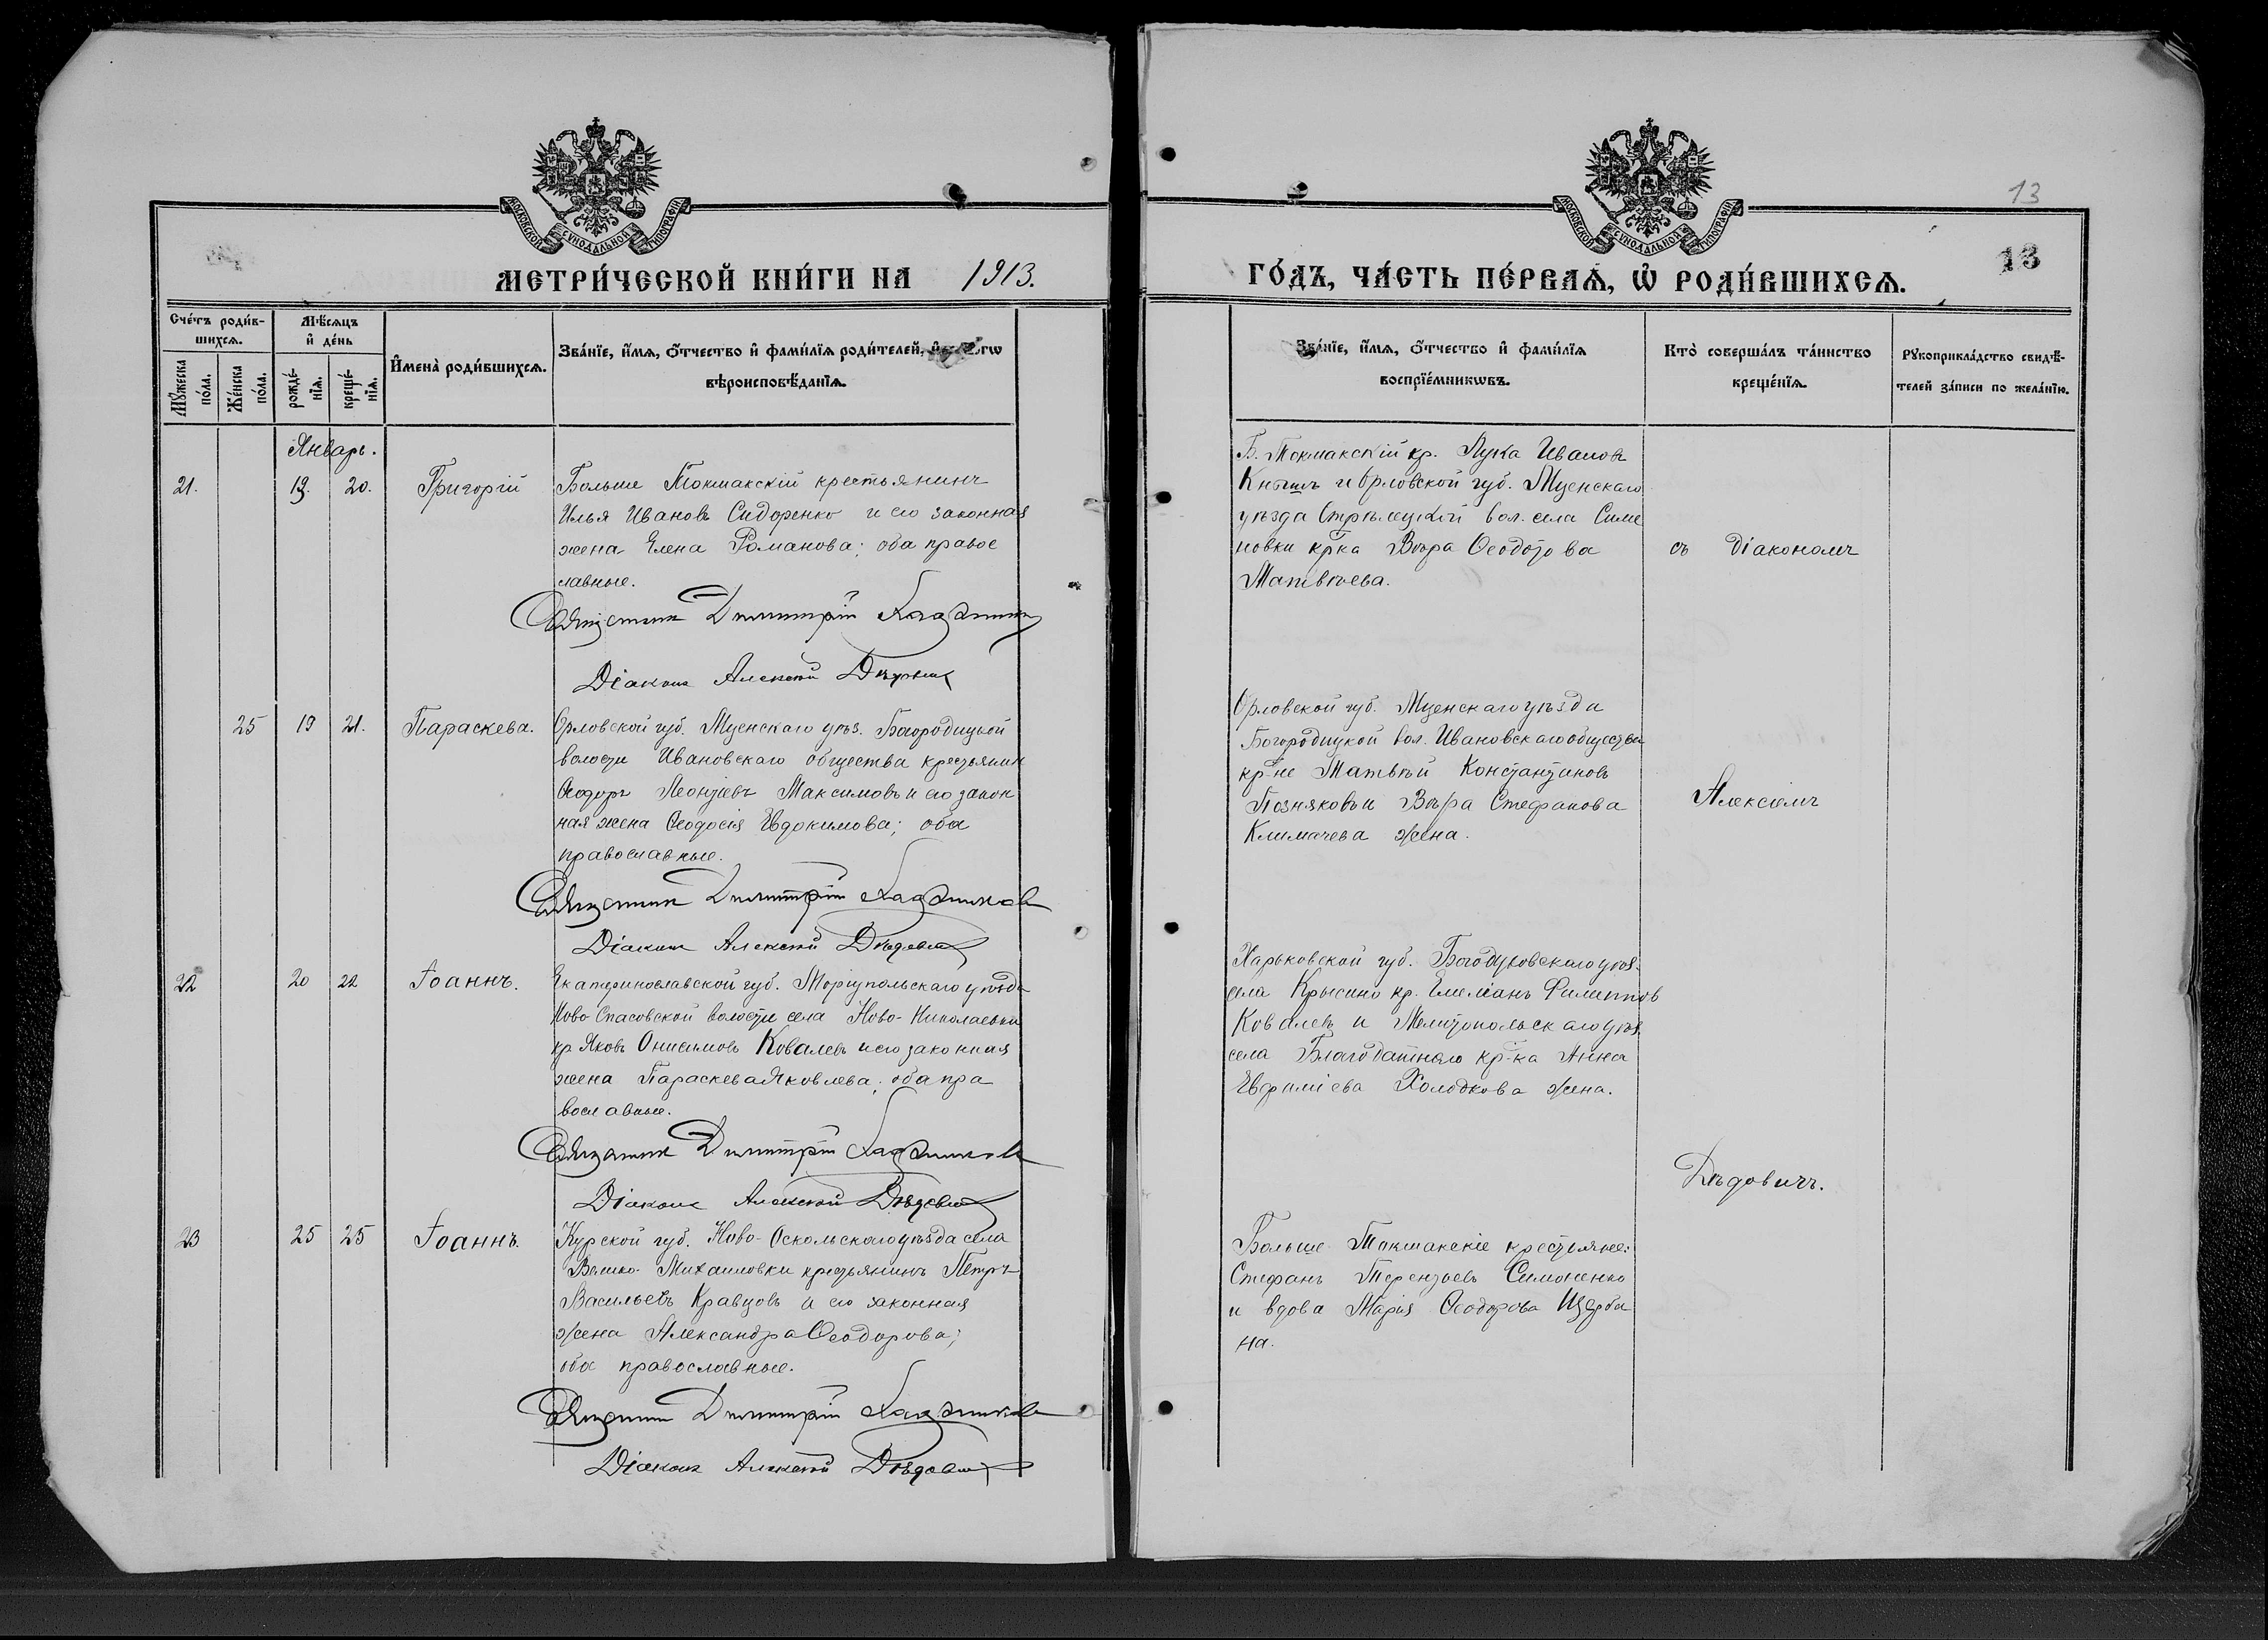 13
МОСКОВСКОЙ СѴНОДАЛЬНОЙ ТИПОГРАФІИ
МОСКОВСКОЙ СѴНОДАЛЬНОЙ ТИПОГРАФІИ
13
МЕТРИ́ЧЕСКОЙ КНИ́ГИ НА 1913.
ГО́ДЪ, ЧА́СТЬ ПЕ́РВАѦ, Ѡ҆ РОДИ́ВШИХСѦ.
Сче́тъ роди́в-
шихсѧ.
Мѣ́сѧцъ
и҆ де́нь
Мꙋ́жеска
по́ла.
Же́нска
по́ла.
рожде́-
нїѧ.
креще́-
нїѧ.
И҆мена̀ роди́вшихсѧ.
Зва́нїе, и҆́мѧ, ѻ҆́тчество и҆ фами́лїѧ роди́телей,
вѣроисповѣ́данїѧ.
Зва́нїе, и҆́мѧ, ѻ҆́тчество и҆ фами́лїѧ
воспрїе́мникѡвъ.
Кто̀ соверша́лъ та́инство
креще́нїѧ.
Рꙋкоприкла́дство свидѣ́-
телей за́писи по жела́нїю.
Январь.
21. 19. 20. Григорій
Больше Токмакскій крестьянинъ
Илья Ивановъ Сидоренко и его законная
жена Елена Романова; оба правос
лавные.
Священникъ Димитрій
Діаконъ Алексѣй Дѣдовичъ
Б. Токмакскій кр. Лука Ивановъ
Кнышъ и Орловской губ. Мценскаго
уѣзда Стрѣлецкой вол. села Симе
новки кр-ка Вѣра Ѳеодотова
Матвѣева.
съ Діакономъ
25 19 21. Параскева.
Орловской губ. Мценскаго уѣз. Богородицкой
волости Ивановскаго общества крестьянин
Ѳеодоръ Леонтіевъ Максимовъ и его закон
ная жена Ѳеодосія Евдокимова; оба
православные.
Священникъ Димитрій
Діаконъ Алексѣй Дѣдовичъ
Орловской губ. Мценскаго уѣзда
Богородицкой вол. Ивановскаго общества
кр-не Матвѣй Константиновъ
Позняковъ и Вѣра Стефанова
Климачева жена.
Алексіемъ
22 20 22 Іоаннъ.
Екатеринославской губ. Маріупольскаго уѣзда
Ново-Спасовской волости села Ново-Николаевки
кр. Яковъ Онисимовъ Ковалевъ и его законная
жена Параскева Яковлева; оба пра
вославные.
Священникъ Димитрій
Діаконъ Алексѣй Дѣдовичъ
Харьковской губ. Богодуховскаго уѣз.
села Крысино кр. Емеліанъ Филиппов
Ковалевъ и Мелитопольскаго уѣз.
села Благодатнаго кр-ка Анна
Евфиміева Холодкова жена.
Дѣдовичъ.
23 25 25 Іоаннъ.
Курской губ. Ново-Оскольскаго уѣзда села
Велико-Михайловки крестьянинъ Петръ
Васильевъ Кравцовъ и его законная
жена Александра Ѳеодорова;
оба православные.
Священникъ Димитрій
Діаконъ Алексѣй Дѣдовичъ
Больше Токмакскіе крестьяне:
Стефанъ Терентьевъ Симоненко
и вдова Марія Ѳеодорова Щерби
на.